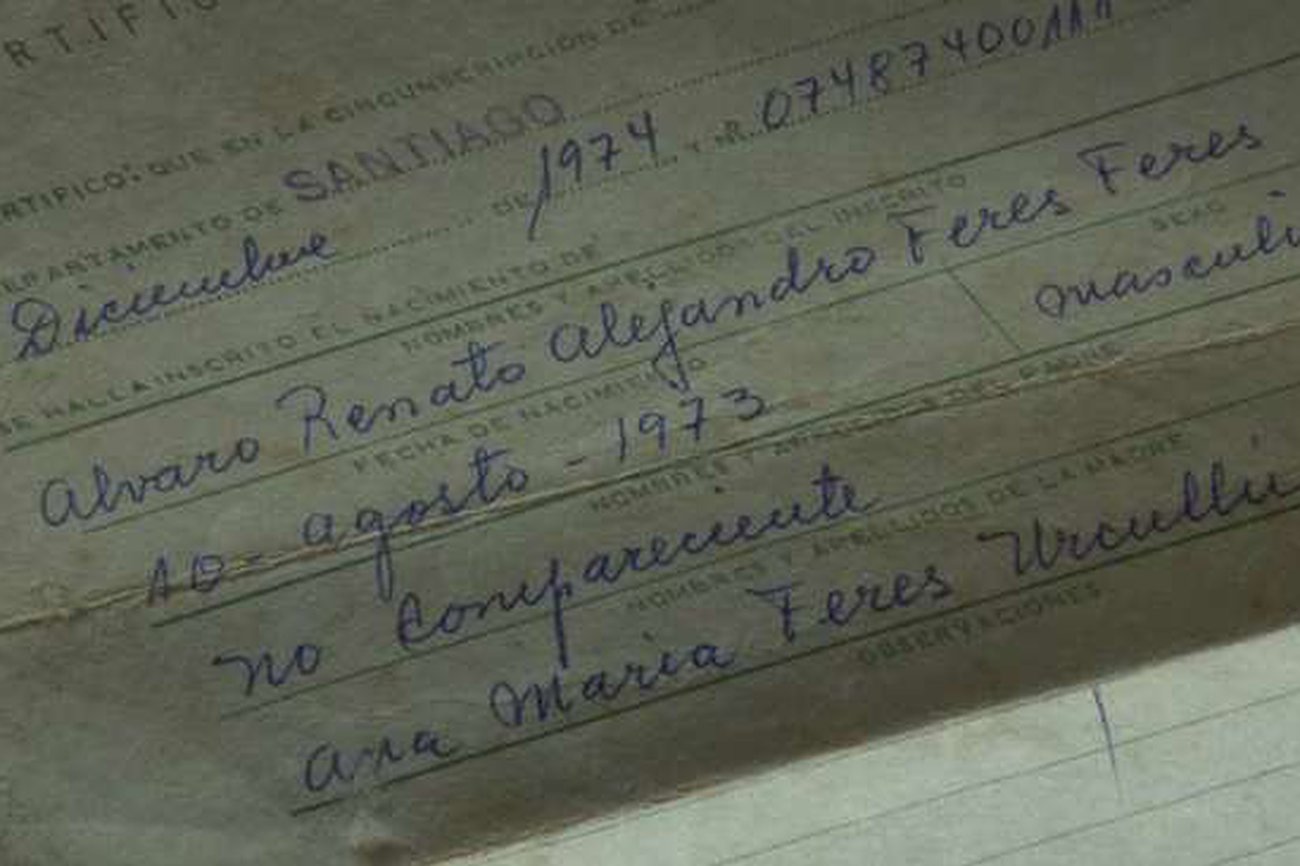 RTIFI
RTIFICO: QUE EN LA CIRCUNSCRIPCIÓN DE
EPARTAMENTO DE SANTIAGO
Diciembre DE 1974 Y Nº 07487400111
SE HALLA INSCRITO EL NACIMIENTO DE
NOMBRES Y APELLIDO DEL INSCRITO
Alvaro Renato Alejandro Feres Feres
FECHA DE NACIMIENTO SEXO
10 - agosto - 1973 masculi
NOMBRES Y APELLIDOS DEL PADRE
no compareciente
NOMBRES Y APELLIDOS DE LA MADRE
Ana Maria Feres Urcullu
OBSERVACIONES